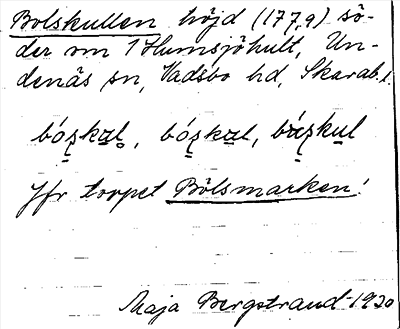 Bolskullen höjd (177,9) sö-
der om 1 Humsjöhult, Un-
denäs sn, Vadsbo hd, Skarab. l.
Jfr torpet Bölsmarken!
Maja Bergstrand 1930